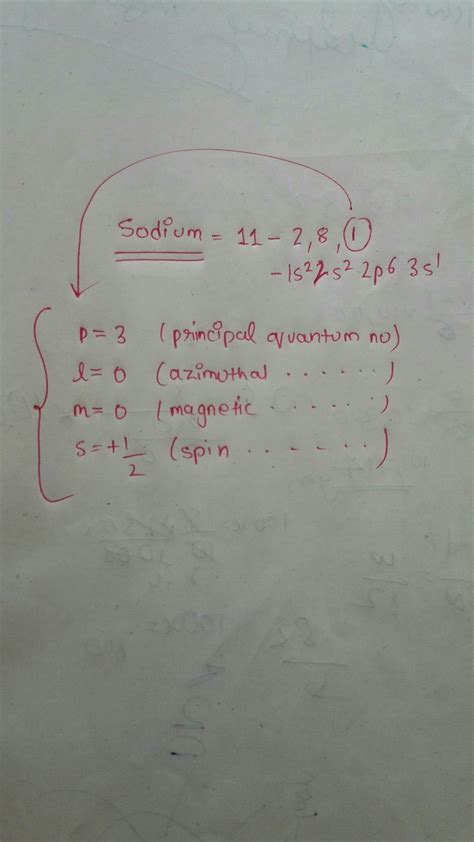 Sodium = 11 - 2, 8, 1
- 1s² 2s² 2p6 3s¹
p = 3 (principal quantum no)
l = 0 (azimuthal ......)
m = 0 (magnetic ......)
s = +1/2 (spin ......)